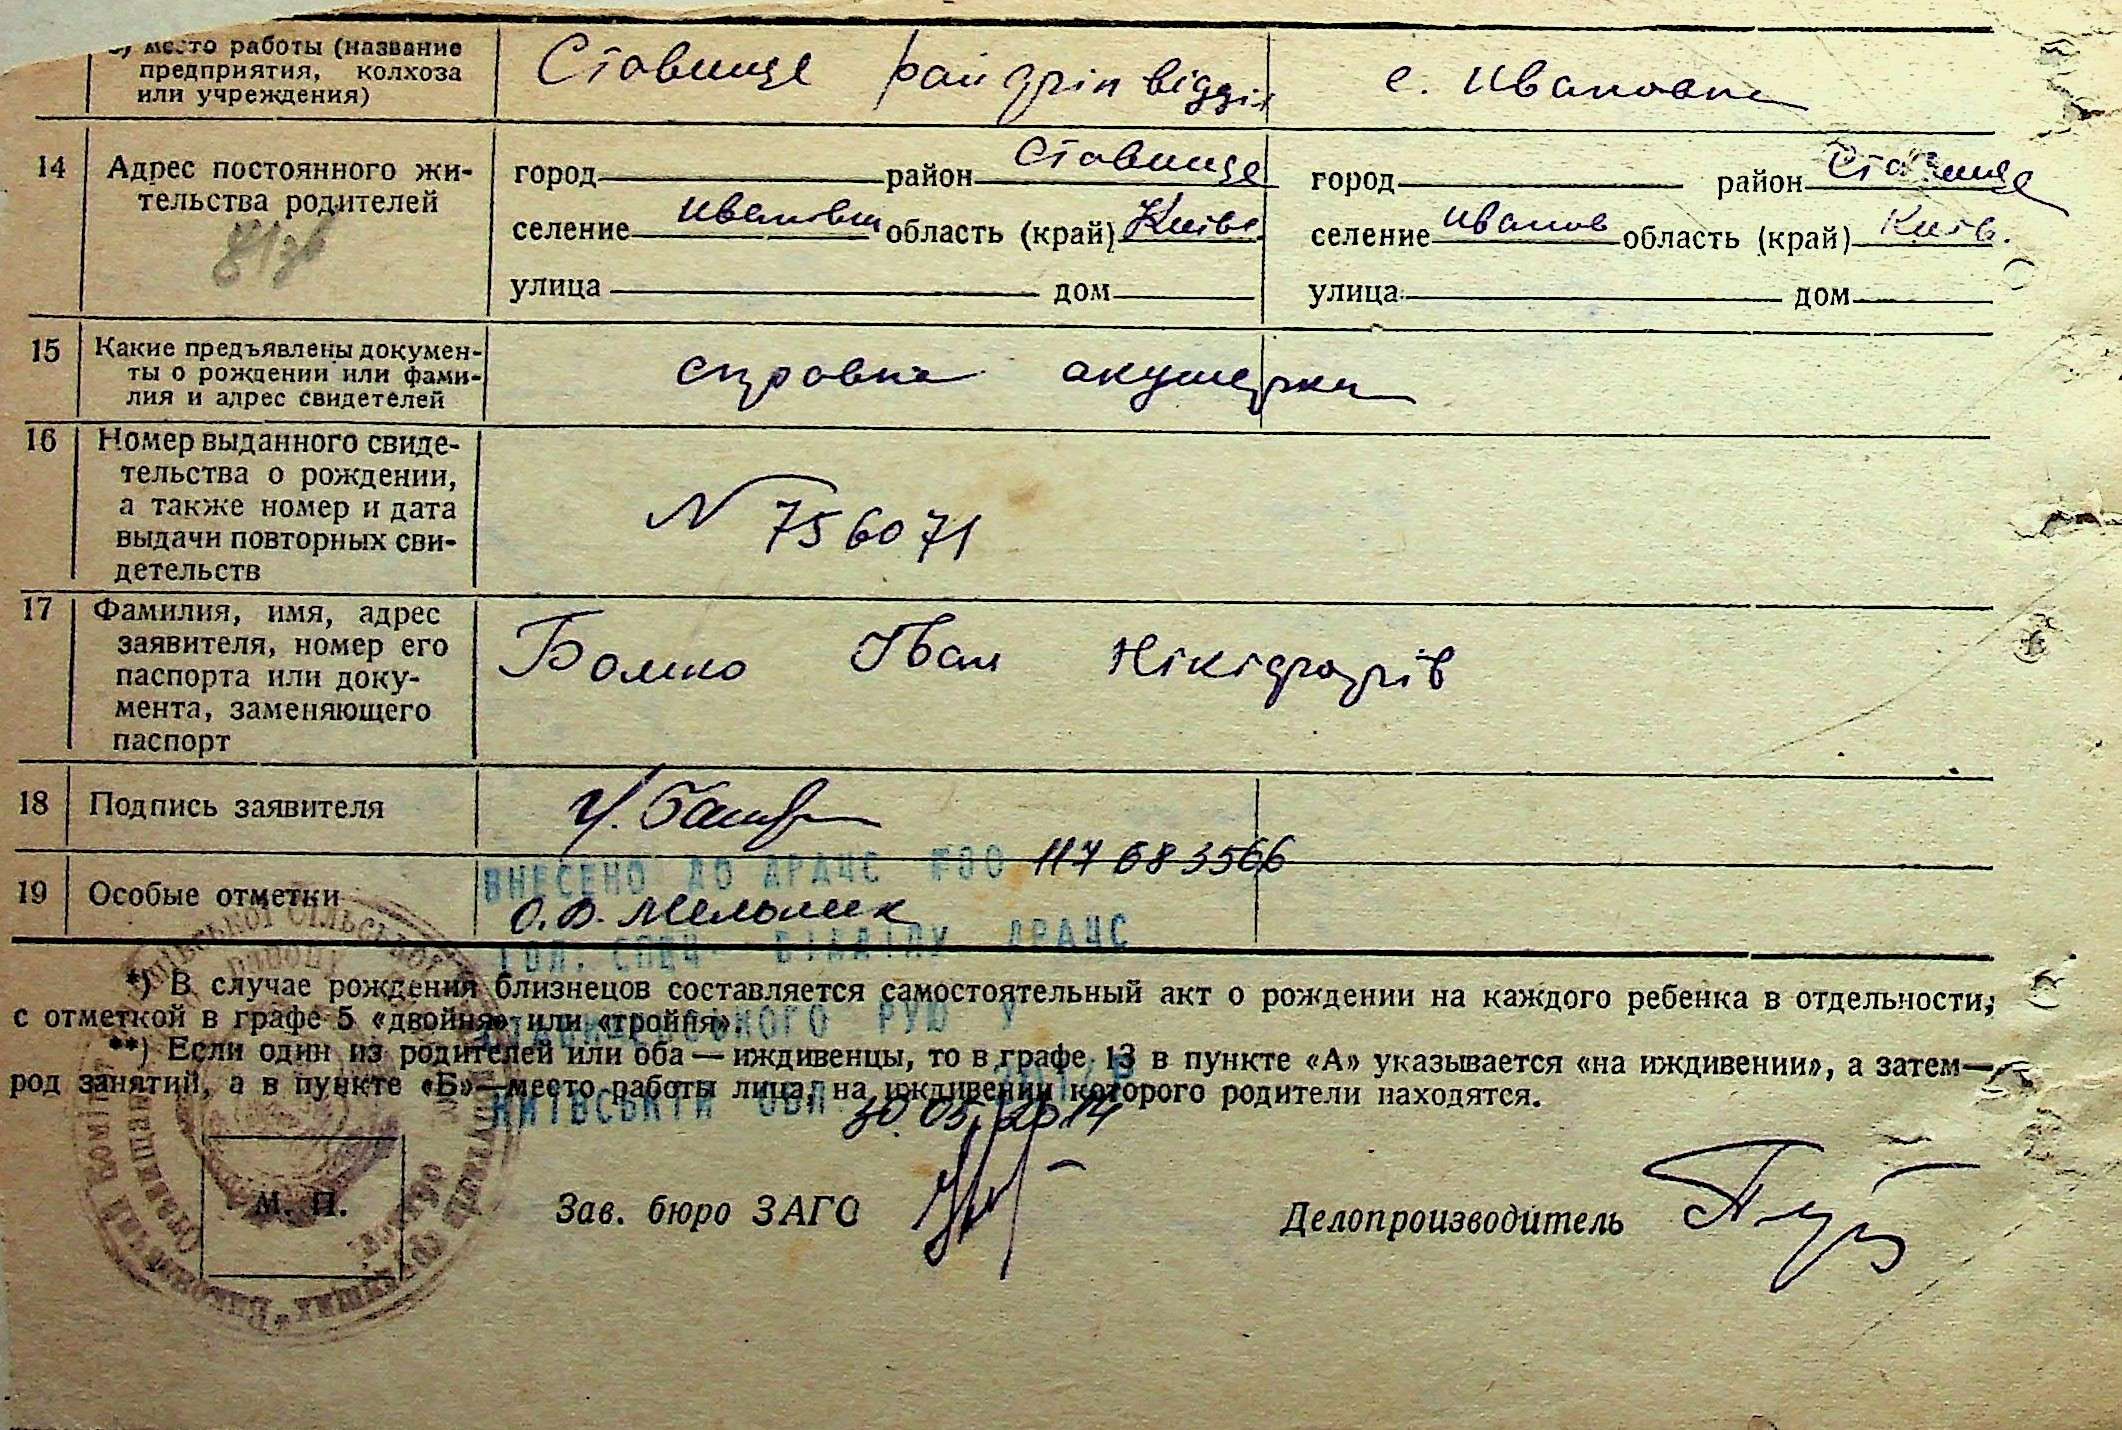 место работы (название
предприятия, колхоза
или учреждения)
Ставище рай відділ
с. Ивановка
14 Адрес постоянного жи-
тельства родителей
город район Ставище
селение область (край) Київ
улица дом
город район Ставище
селение Иванов область (край) Київ.
улица дом
15 Какие предъявлены докумен-
ты о рождении или фами-
лия и адрес свидетелей
справка акушерки
16 Номер выданного свиде-
тельства о рождении,
а также номер и дата
выдачи повторных сви-
детельств
N 756071
17 Фамилия, имя, адрес
заявителя, номер его
паспорта или доку-
мента, заменяющего
паспорт
Іван
18 Подпись заявителя
ВНЕСЕНО ДО ДРАЦС 117683566
19 Особые отметки
О.В. Мельник
ГОЛ. СПЕЦ ВІДДІЛУ ДРАЦС
*) В случае рождения близнецов составляется самостоятельный акт о рождении на каждого ребенка в отдельности,
с отметкой в графе 5 «двойня» или «тройня».
РУЮ У
**) Если один из родителей или оба — иждивенцы, то в графе 13 в пункте «А» указывается «на иждивении», а затем—
род занятий, а в пункте «Б»—место работы лица, на иждивении которого родители находятся.
КИЇВСЬКІЙ ОБЛ. 30.05.2014
М. П.
Зав. бюро ЗАГС
Делопроизводитель